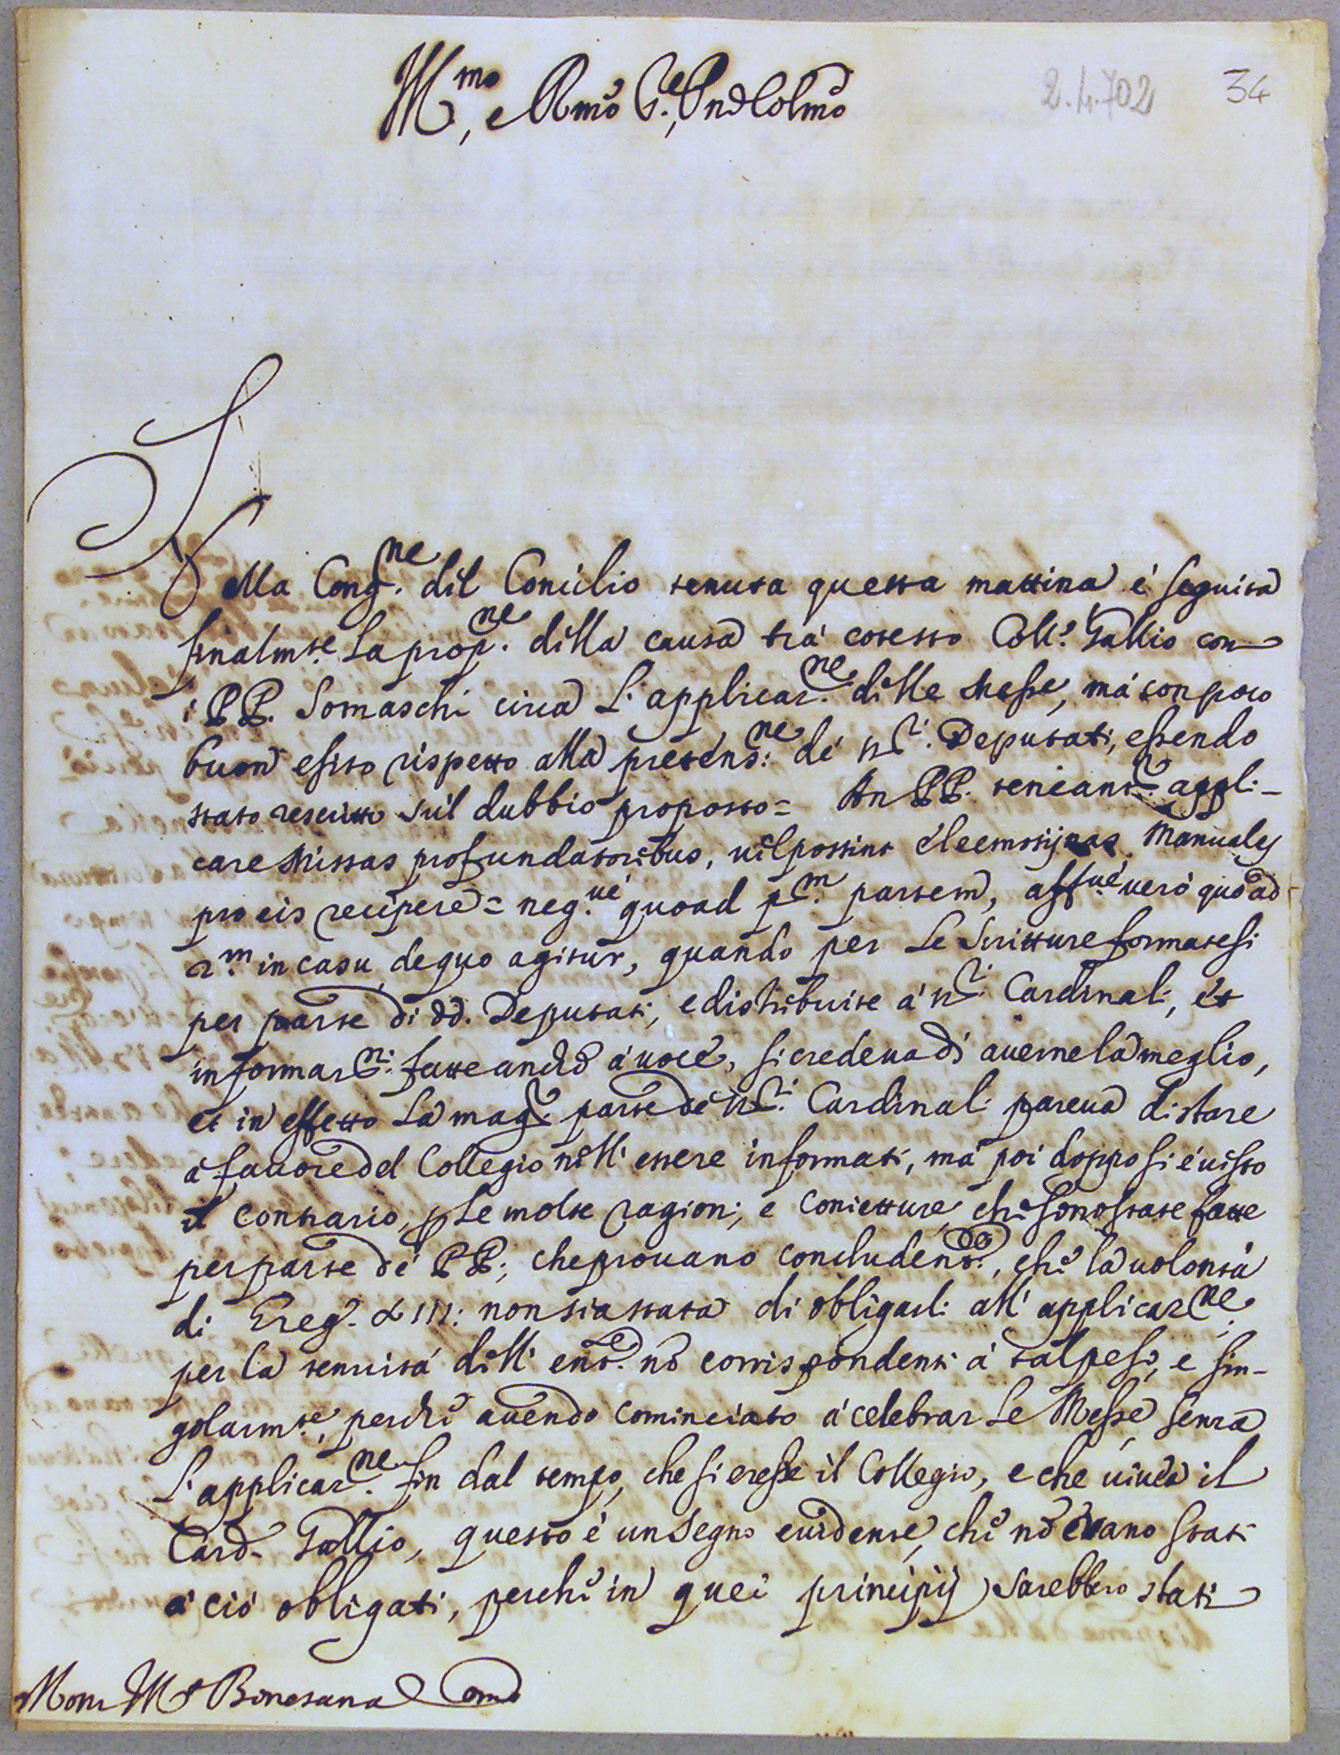 Ill.mo, e R.mo S.re, P.ron Col.mo
2.4.702 34
Nella Cong.ne del Concilio tenuta questa mattina è seguita
finalm.te la prop.ne della causa trà cotesto Coll.o Gallio con
i PP. Somaschi circa l'applicaz.ne delle Messe, mà con poco
buon esito rispetto alla pretens.ne de' SS.ri Deputati, essendo
stato rescritto sul dubbio proposto = An PP. teneant.r appli-
care Missas pro fundatoribus, vel possint eleemosijnas Manuales
pro eis recipere = neg.vè quoad p.m partem, aff.vè verò quoad
2.m in casu, de quo agitur, quando per le Scritture formatesi
per parte di dd. Deputati, e distribuite à SS.ri Cardinali, et
informaz.ni fatte anche à voce, si credeva di avernela meglio,
et in effetto la magg.r parte de' SS.ri Cardinali pareva di stare
à favore del Collegio nell'essere informati, mà poi doppo si è visto
il contrario, p le molte ragioni, e conietture, che sono state fatte
per parte de' PP., che provano concludend.o, che la volontà
di Greg.o XIII: non sia stata di obligarli all'applicaz.ne,
per la tenuità dell'ent.e nò corrispondenti à tal peso, e sin-
golarm.te, perche avendo cominciato à celebrar le Messe senza
l'applicaz.ne fin dal tempo, che si eresse il Collegio, e che vivea il
Card. Gallio, questo è un segno evidente, che nò erano stati
à ciò obligati, perche in quei principij sarebbero stati
Mons.r Ill.mo Bonesana Como